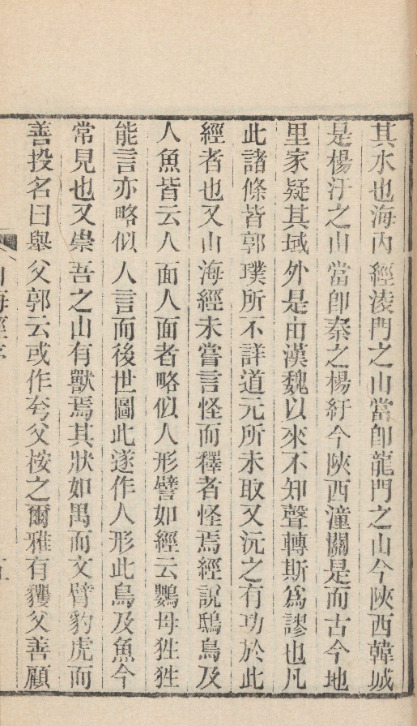 其水也海内經淩門之山當卽龍門之山今陝西韓城
是楊汙之山當卽秦之楊紆今陝西潼關是而古今地
里家疑其域外是由漢魏以來不知聲轉斯爲謬也凡
此諸條皆郭璞所不詳道元所未取又沅之有功於此
經者也又山海經未嘗言怪而釋者怪焉經說鴟鳥及
人魚皆云人面人面者略似人形譬如經云鸚母狌狌
能言亦略似人言而後世圖此遂作人形此鳥及魚今
常見也又崇吾之山有獸焉其狀如禺而文臂豹虎而
善投名曰舉父郭云或作夸父按之爾雅有玃父善顧
山海經序
五